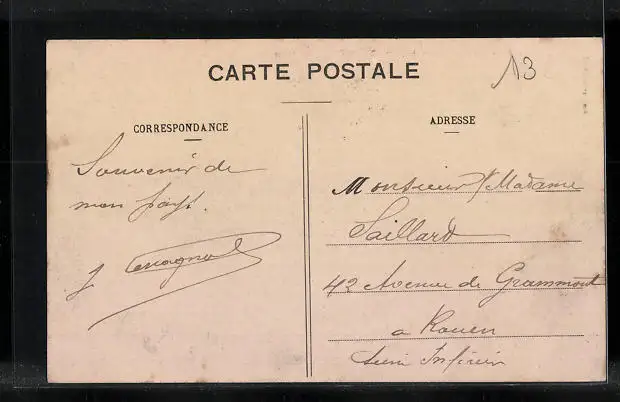 CARTE POSTALE
13
CORRESPONDANCE
Souvenir de
mon pays.
J
ADRESSE
Monsieur / Madame
Saillard
42 Avenue de Grammont
a Rouen
Seine Inférieur